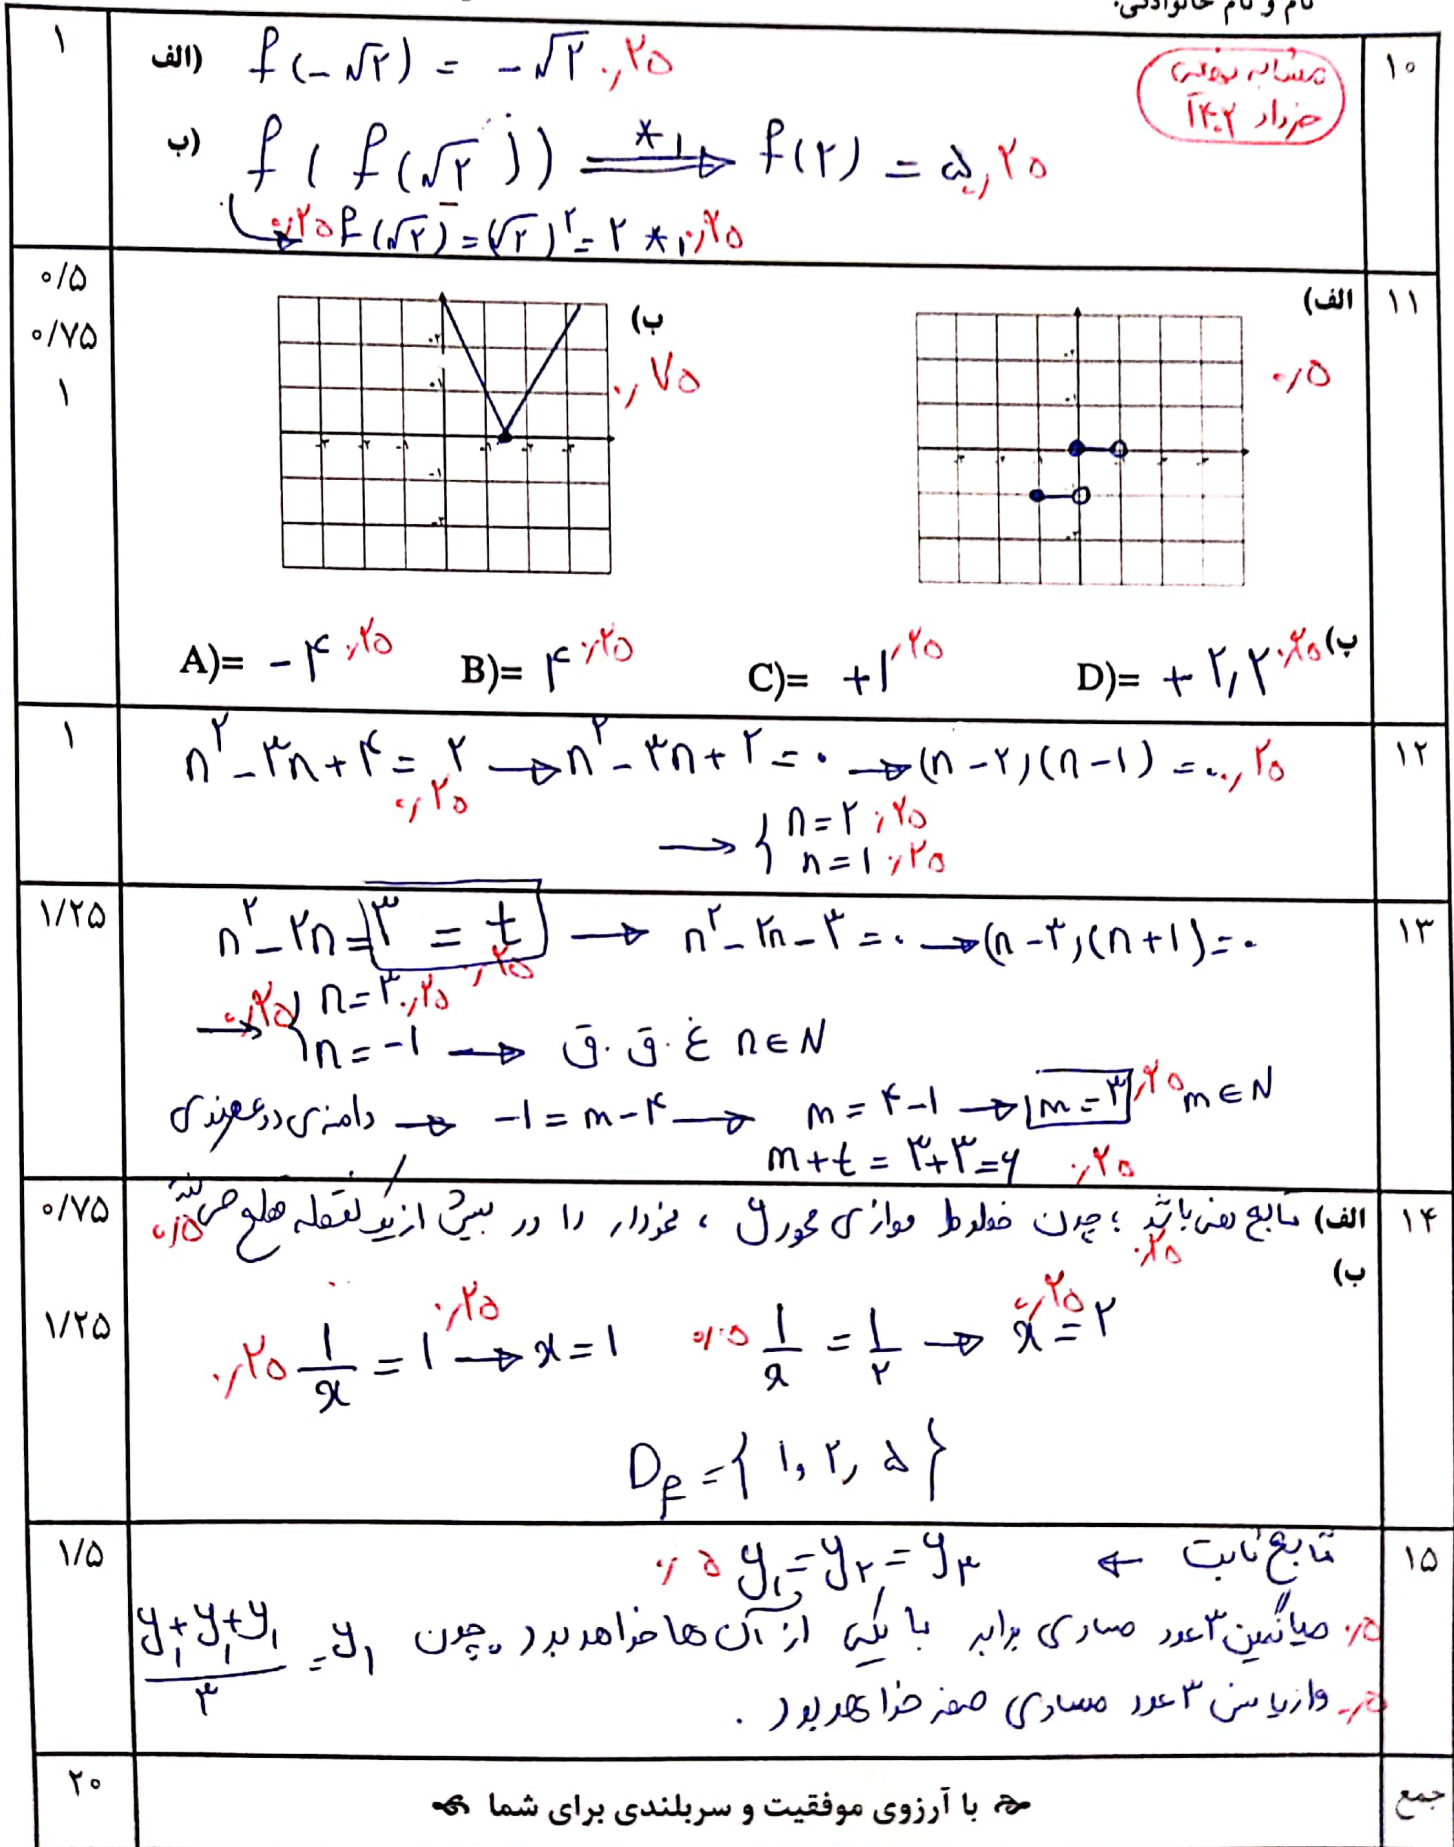 نام و نام خانوادگی:
۱۰
مشابه نهایی
خرداد ۱۴۰۲
۱
الف) f(-√۲) = -√۲ ۰٫۲۵
ب) f(f(√۲)) *۱ ⟹ f(۲) = ۵ ۰٫۲۵
۰٫۲۵ f(√۲) = (√۲)^۲ = ۲ *۱ ۰٫۲۵
۱۱
۰/۵
۰/۷۵
۱
الف)
۰٫۵
ب)
۰٫۷۵
پ)
A)= -۴ ۰٫۲۵ B)= ۴ ۰٫۲۵ C)= +۱ ۰٫۲۵ D)= +۲٫۲ ۰٫۲۵
۱۲
۱
n^۲ - ۳n + ۴ = ۲ ۰٫۲۵ → n^۲ - ۳n + ۲ = ۰ → (n-۲)(n-۱) = ۰ ۰٫۲۵
→ { n = ۲ ۰٫۲۵
n = ۱ ۰٫۲۵
۱۳
۱/۲۵
n^۲ - ۲n = ۳ = t ۰٫۲۵ → n^۲ - ۲n - ۳ = ۰ → (n-۳)(n+۱) = ۰
۰٫۲۵ → { n = ۳ ۰٫۲۵
n = -۱ → غ.ق.ق n∈N
دامنه‌ی → -۱ = m-۴ → m = ۴-۱ → m = ۳ ۰٫۲۵ m∈N
m+t = ۳+۳ = ۶ ۰٫۲۵
۱۴
۰/۷۵
۱/۲۵
الف) تابع نمی‌باشد ؛ چون خطوط موازی محور y ، نمودار را در بیش از یک نقطه قطع می‌کند ۰٫۵
۰٫۲۵
ب)
۰٫۲۵ ۱/x = ۱ → x = ۱ ۰٫۲۵ ۰٫۵ ۱/x = ۱/۲ → x = ۲ ۰٫۲۵
D_f = { ۱, ۲, ۵ }
۱۵
۱/۵
تابع ثابت ← y_۱ = y_۲ = y_۳ ۰٫۵
۰٫۵ میانگین ۳ عدد مساوی برابر با یکی از آن ها خواهد بود چون (y_۱+y_۱+y_۱)/۳ = y_۱
۰٫۵ واریانس ۳ عدد مساوی صفر خواهد بود .
جمع
با آرزوی موفقیت و سربلندی برای شما
۲۰